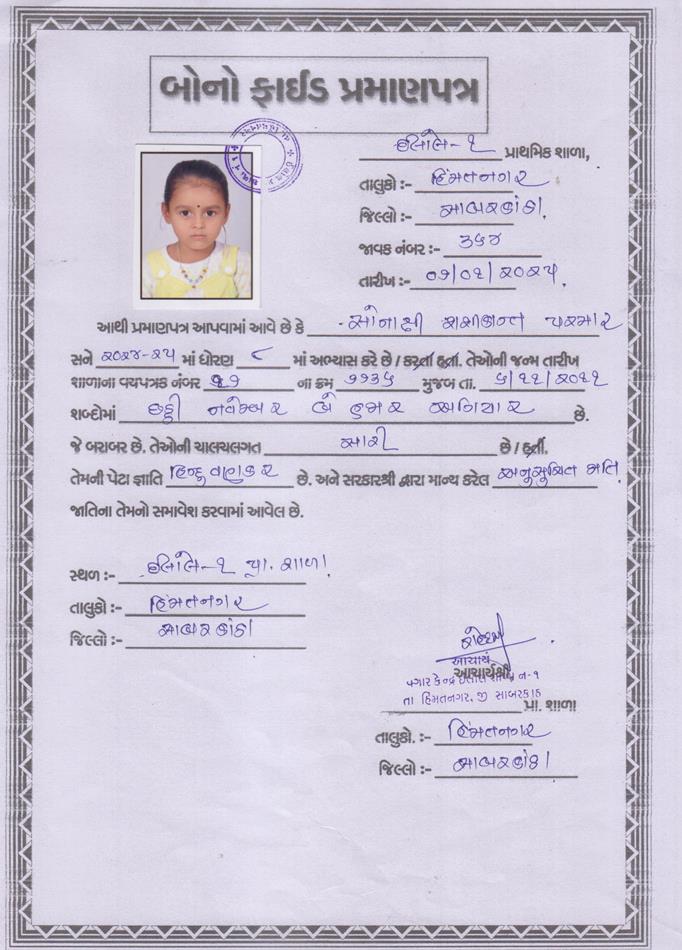 બોનો ફાઈડ પ્રમાણપત્ર
ઇલોલ-૧ પ્રાથમિક શાળા,
તાલુકો :- હિંમતનગર
જિલ્લો :- સાબરકાંઠા
જાવક નંબર :- ૩૬૪
તારીખ :- ૦૭/૦૧/૨૦૨૫
આથી પ્રમાણપત્ર આપવામાં આવે છે કે સોનાક્ષી શશીકાન્ત પરમાર
સને ૨૦૨૪-૨૫ માં ધોરણ ૮ માં અભ્યાસ કરે છે / કરતા હતા. તેઓની જન્મ તારીખ
શાળાના વયપત્રક નંબર ૧૭ ના ક્રમ ૧૧૩૬ મુજબ તા. ૬/૧૧/૨૦૧૧
શબ્દોમાં છઠ્ઠી નવેમ્બર બે હજાર અગિયાર છે.
જે બરાબર છે. તેઓની ચાલચલગત સારી છે / હતી.
તેમની પેટા જ્ઞાતિ હિન્દુ વણકર છે. અને સરકારશ્રી દ્વારા માન્ય કરેલ અનુસુચિત જાતિ
જાતિના તેમનો સમાવેશ કરવામાં આવેલ છે.
સ્થળ :- ઇલોલ-૧ પ્રા. શાળા
તાલુકો :- હિંમતનગર
જિલ્લો :- સાબરકાંઠા
આચાર્ય
આચાર્યશ્રી
પગાર કેન્દ્ર ઇલોલ શાળા નં-૧
તા હિંમતનગર, જી સાબરકાંઠા
પ્રા. શાળા
તાલુકો. :- હિંમતનગર
જિલ્લો :- સાબરકાંઠા